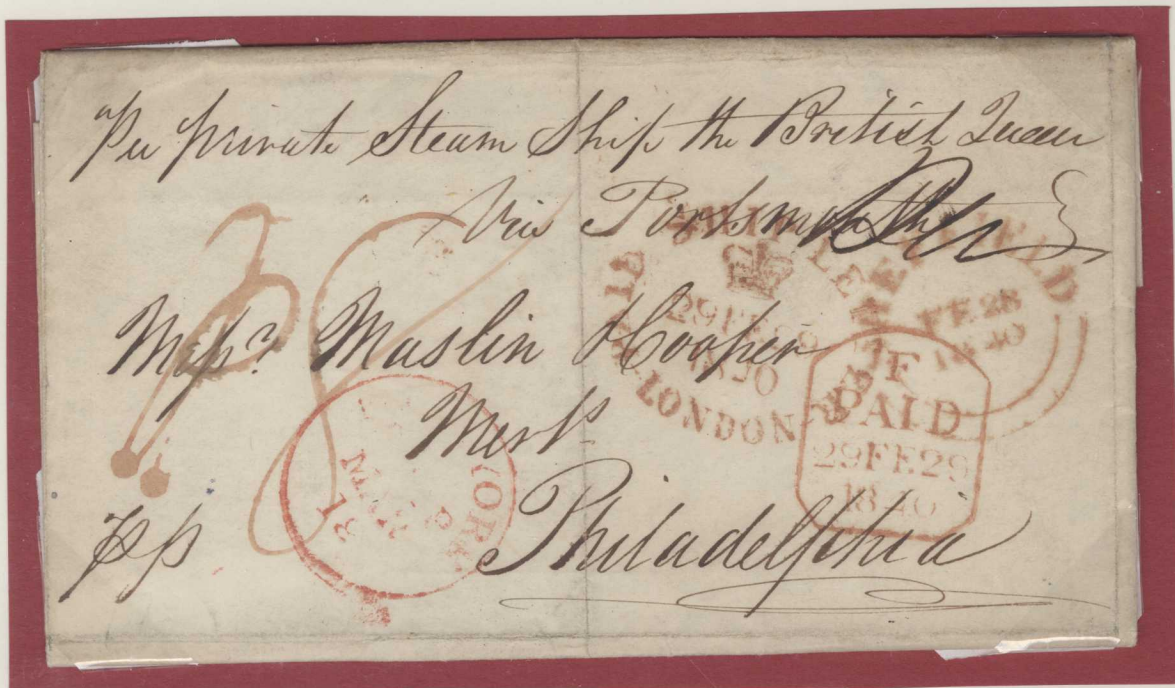 Per private Steam Ship the British Queen
Via Portsmouth
Messrs Maslin & Cooper
Merts
pp Philadelphia
PAID
29FE29
1840
LONDON
FE 28
1840
F
PAID
29FE29
1840
YORK
MAR
18